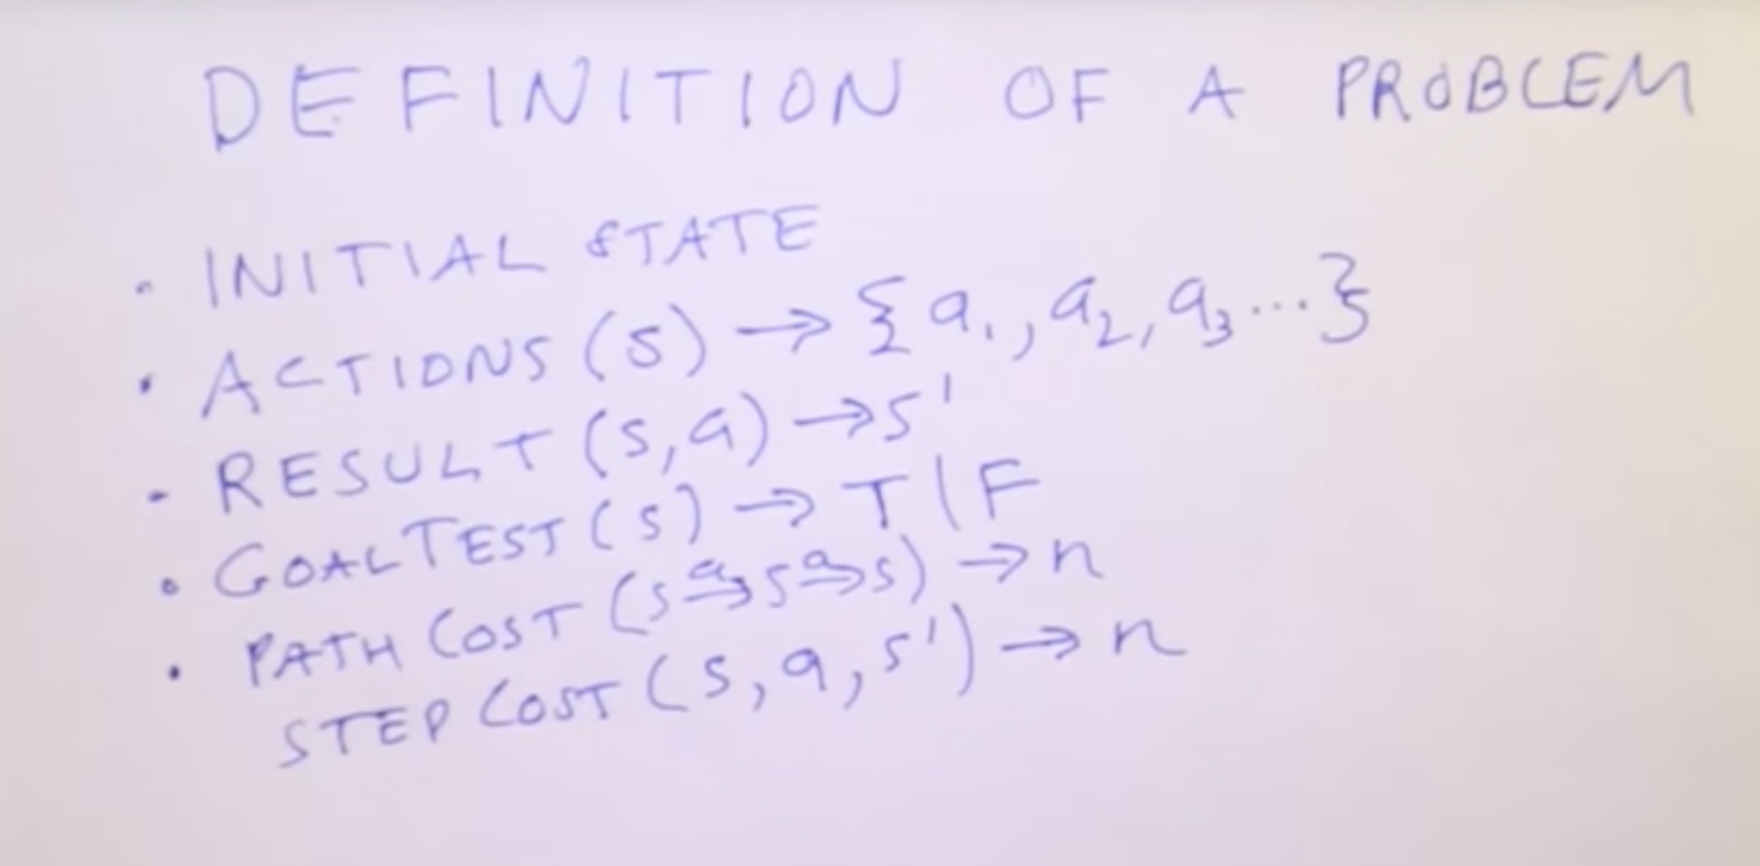 DEFINITION OF A PROBLEM
· INITIAL STATE
· ACTIONS (s) → {a₁, a₂, a₃ ...}
· RESULT (s, a) → s'
· GOALTEST (s) → T | F
· PATH COST (s –a→ s –a→ s) → n
STEP COST (s, a, s') → n